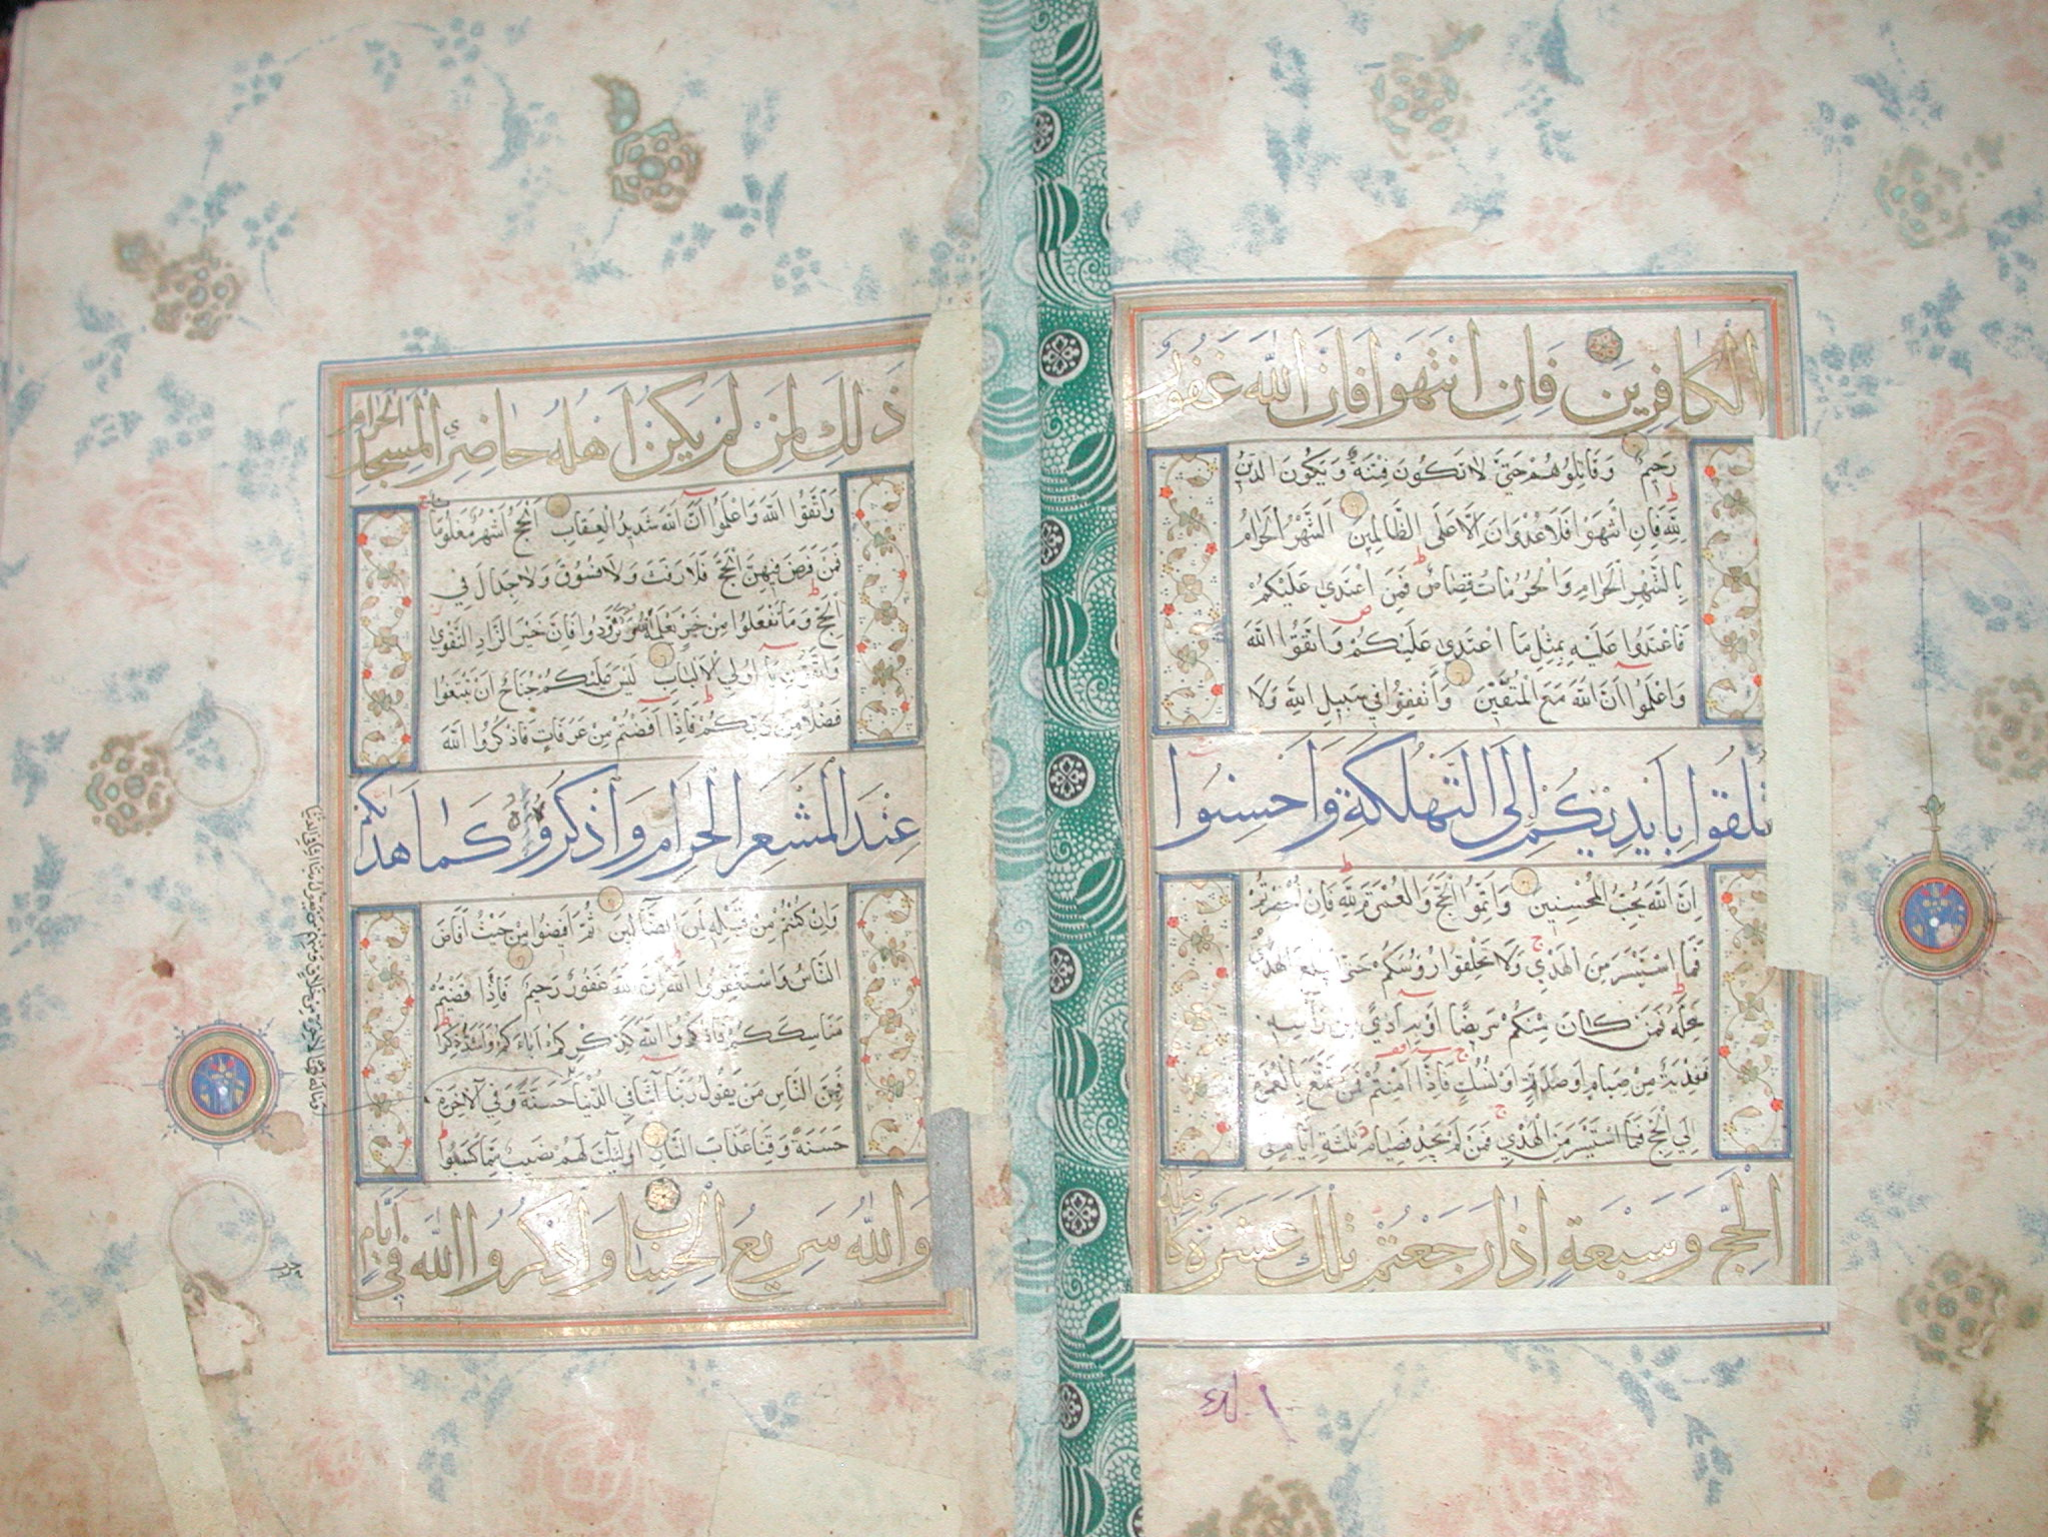 الكافرين فان انتهوا فان الله غفور
رحيم وقاتلوهم حتى لا تكون فتنة ويكون الدين
لله فان انتهوا فلا عدوان الا على الظالمين الشهر الحرام
بالشهر الحرام والحرمات قصاص فمن اعتدي عليكم
فاعتدوا عليه بمثل ما اعتدي عليكم واتقوا الله
واعلموا ان الله مع المتقين وانفقوا في سبيل الله ولا
تلقوا بايديكم الى التهلكة واحسنوا
ان الله يحب المحسنين واتموا الحج والعمرة لله فان احصرتم
فما استيسر من الهدي ولا تحلقوا رؤسكم حتى يبلغ الهدي
محله فمن كان منكم مريضا او به اذي من راسه
ففدية من صيام او صدقة او نسك فاذا امنتم فمن تمتع بالعمرة
الي الحج فما استيسر من الهدي فمن لم يجد فصيام ثلثة ايام في
الحج وسبعة اذا رجعتم تلك عشرة كاملة
ذلك لمن لم يكن اهله حاضري المسجد الحرام
واتقوا الله واعلموا ان الله شديد العقاب الحج اشهر معلومات
فمن فرض فيهن الحج فلا رفث ولا فسوق ولا جدال في
الحج وما تفعلوا من خير يعلمه الله وتزودوا فان خير الزاد التقوي
واتقون يا اولي الالباب ليس عليكم جناح ان تبتغوا
فضلا من ربكم فاذا افضتم من عرفات فاذكروا الله
عند المشعر الحرام واذكروه كما هداكم
وان كنتم من قبله لمن الضالين ثم افيضوا من حيث افاض
الناس واستغفروا الله ان الله غفور رحيم فاذا قضيتم
مناسككم فاذكروا الله كذكركم اباءكم او اشد ذكرا
فمن الناس من يقول ربنا آتنا في الدنيا حسنة وفي الآخرة
حسنة وقنا عذاب النار اولئك لهم نصيب مما كسبوا
والله سريع الحساب واذكروا الله في ايام